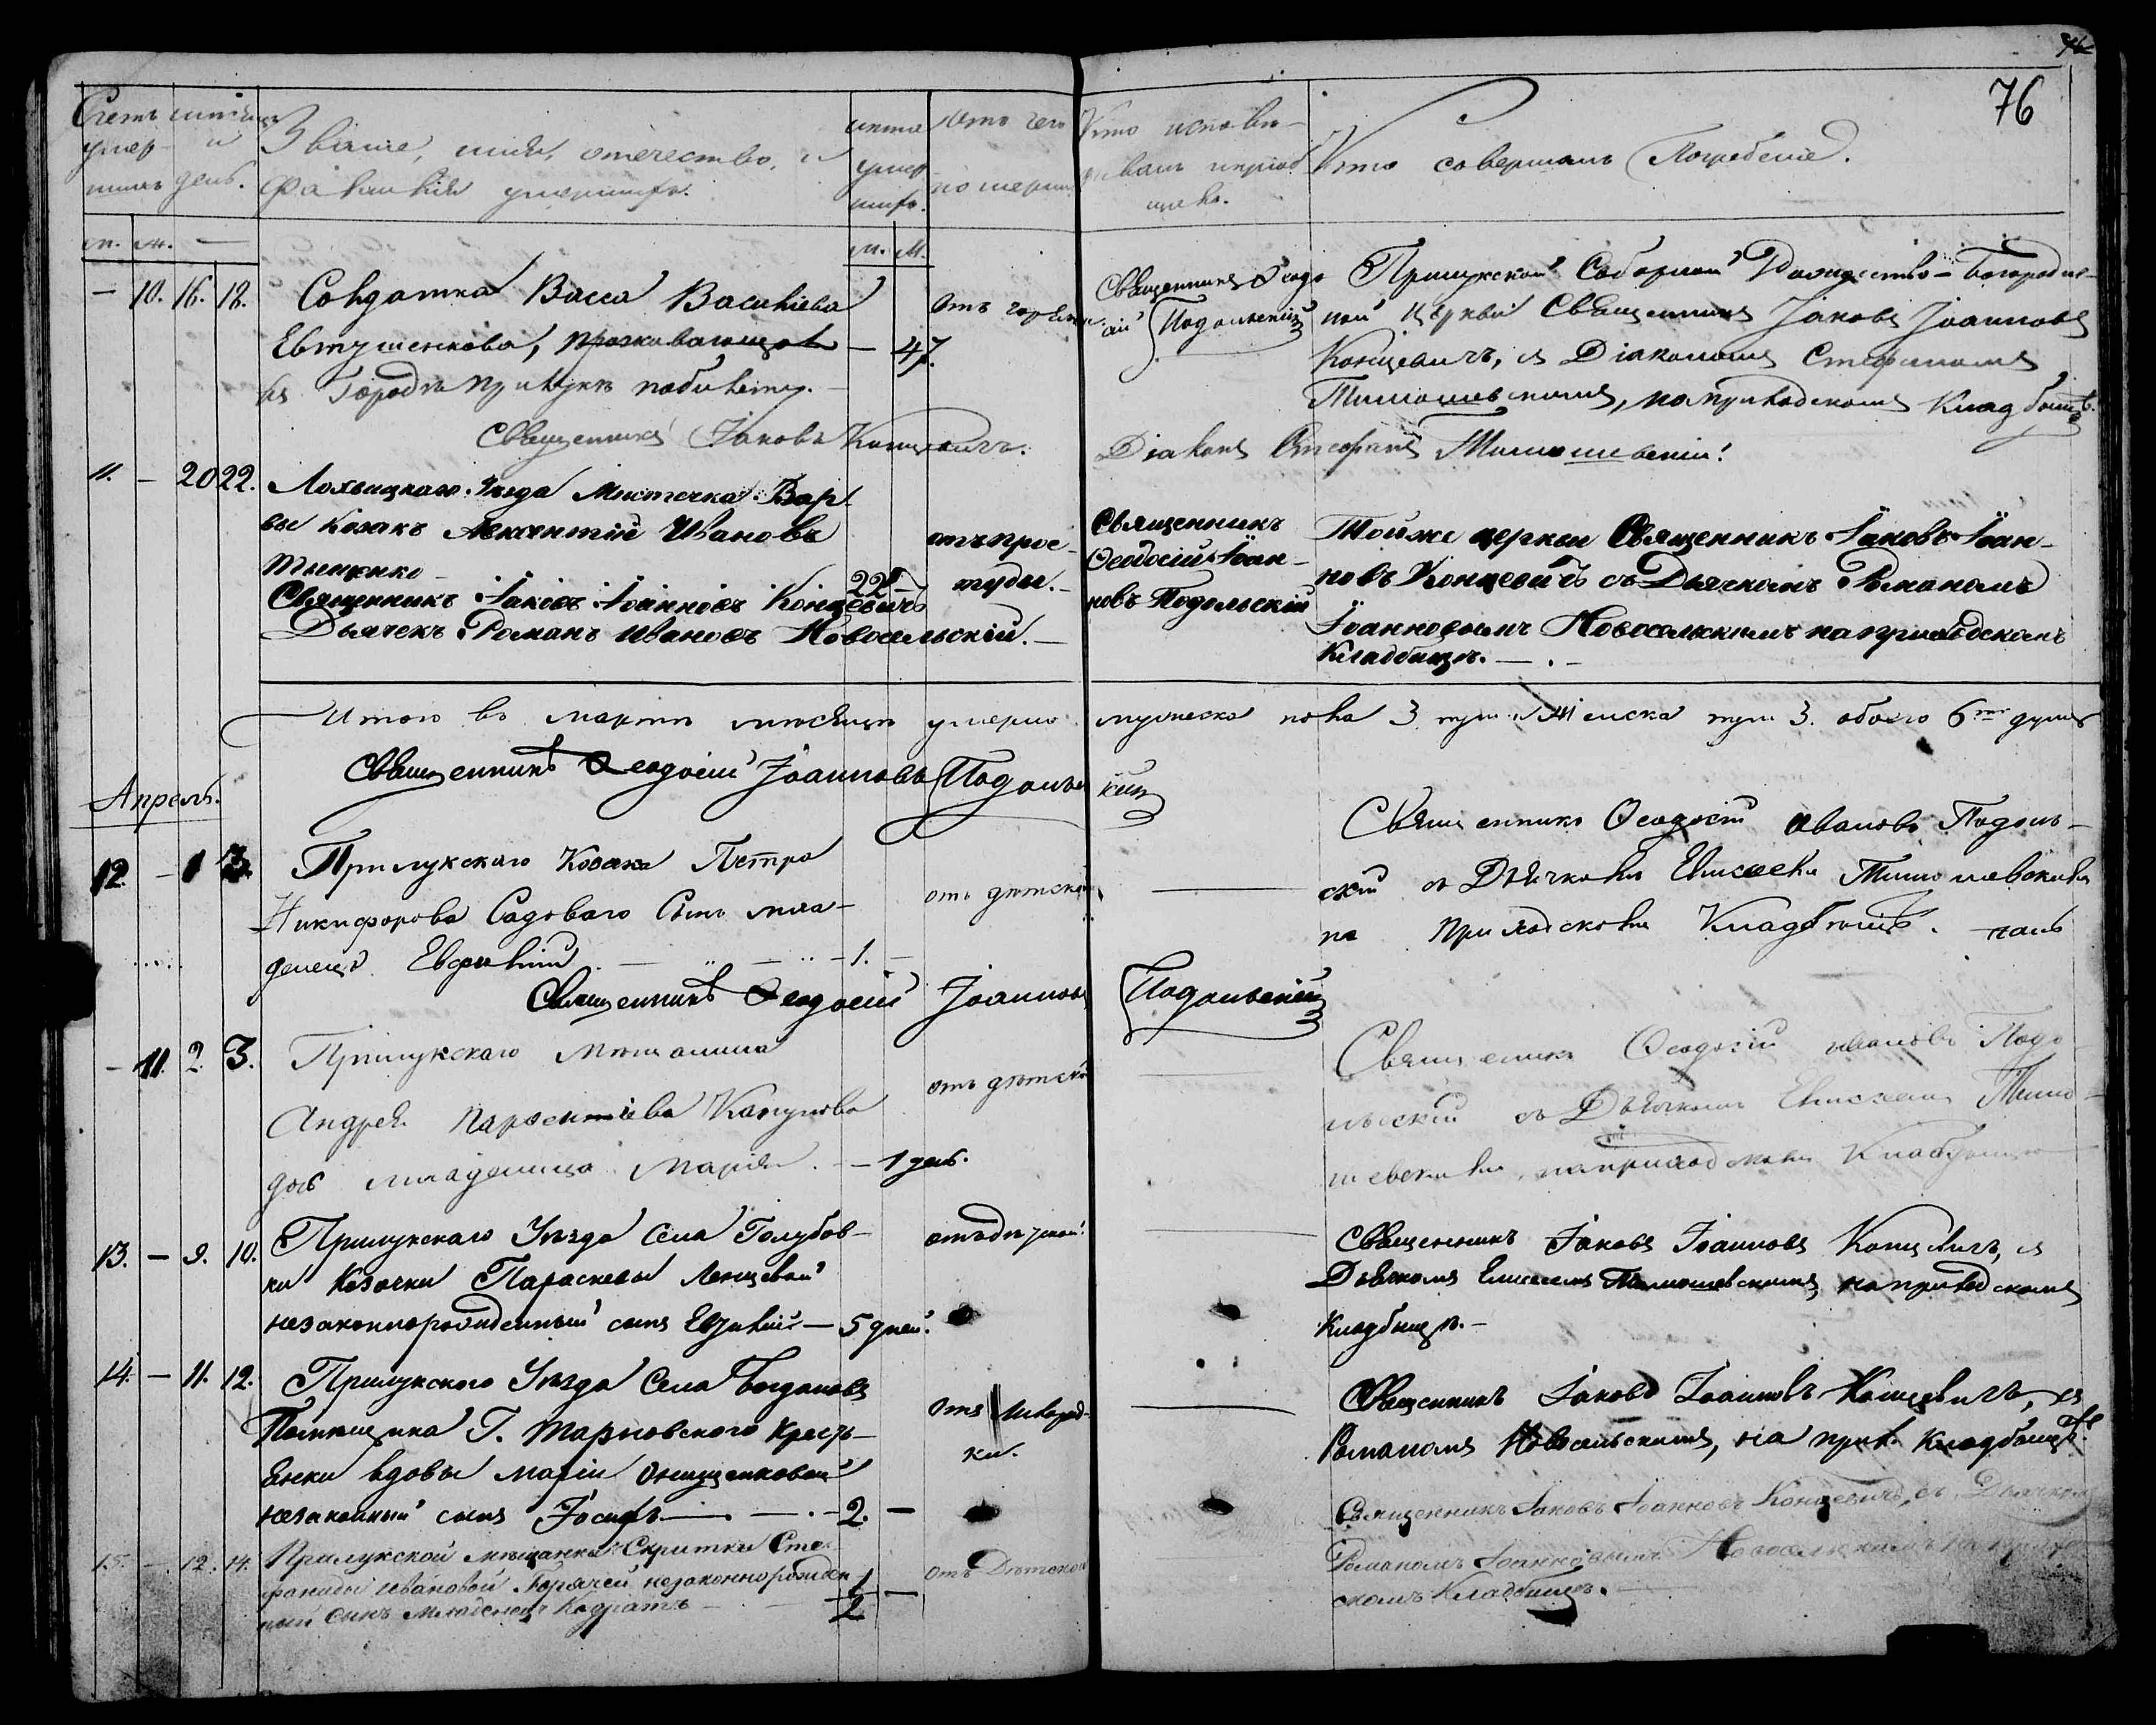 76
Счетъ умер- шихъ
Мѣсяцъ и день.
Званіе, имя, отечество, и
фамилія умершихъ.
Лѣта
умер-
шихъ.
Отъ чего
померли
Кто исповѣ-
дывалъ и пріоб-
щалъ.
Кто совершалъ Погребеніе.
м. ж. —
м. ж.
— 10. 16. 18. Солдатка Васса Васильева
Евтушенкова, проживающая — 47.
въ Городѣ Прилукѣ по билету. —
Отъ горячк.
Священникъ Ѳеодо
сій Подольскій
Прилукской Соборной Рождество-Богородич-
ной церкви Священникъ Іаковъ Іоанновъ
Концевичъ, съ Діакономъ Стефаномъ
Тимошевскимъ, на приходскомъ кладбищѣ.
Священникъ Іаковъ Концевичъ.
Діаконъ Стефанъ Тимошевскій!
11. — 20 22. Лохвицкаго Уѣзда Мѣстечка Вар-
вы Козакъ Авксентій Ивановъ
Тищенко — 22
отъ прос-
туды. —
Священникъ
Ѳеодосій Іоан-
новъ Подольскій
Тойже церкви Священникъ Іаковъ Іоан-
новъ Концевичъ съ Дьячкомъ Романомъ
Іоанновымъ Новосельскимъ на приходскомъ
Кладбищѣ. —
Священникъ Іаковъ Іоанновъ Концевичъ
Дьячекъ Романъ Ивановъ Новосельскій. —
Итого въ мартѣ мѣсяцѣ умерло мужеска пола 3. Женска 3. обоего 6 душъ
Священникъ Ѳеодосій Іоанновъ Подольскій
Апрель.
12. — 1 3. Прилукскаго Козака Петра
Никифорова Садоваго Сынъ мла-
денецъ Евфимій — 1. —
отъ дѣтской
Священникъ Ѳеодосій Ивановъ Подоль-
скій съ Дьячкомъ Елисеемъ Тимошевскимъ
на приходскомъ Кладбищѣ.
Священникъ Ѳеодосій Іоанновъ Подольскій
— 11. 2. 3. Прилукскаго Мѣщанина
Андрея Параскевіева Капунова
дочь младеница Марія. — 1 день.
отъ дѣтской
Священникъ Ѳеодосій Ивановъ Подо-
льскій съ Дьячкомъ Елисеемъ Тимо-
шевскимъ, на приходскомъ Кладбищѣ
13. — 9. 10. Прилукскаго Уѣзда Села Голубов-
ки Козачки Параскевы Ленцевой
незаконнорожденный сынъ Евфимій — 5 дней.
отъ дѣтской.
Священникъ Іаковъ Іоанновъ Концевичъ, съ
Дьячкомъ Елисеемъ Тимошевскимъ на приходскомъ
Кладбищѣ. —
14. — 11. 12. Прилукского Уѣзда Села Богданов
Помещика Г. Тарновского Кресть-
янки вдовы Маріи Онищенковой
незаконный сынъ Іосифъ — 2. —
Отъ
ки.
Священникъ Іаковъ Іоанновъ Концевичъ, съ
Романомъ Новосельскимъ, на прих. кладбищѣ.
15. — 12. 14. Прилукской мѣщанки Скритки Сте-
фаниды Ивановой Горячей незаконнорожден
ный Сынъ Младенецъ Кодратъ — 1/2 —
отъ Дѣтской
Священникъ Іаковъ Іоанновъ Концевичъ, съ Дьячкомъ
Романомъ Іоанновымъ Новосельскимъ на приход-
скомъ Кладбищѣ.